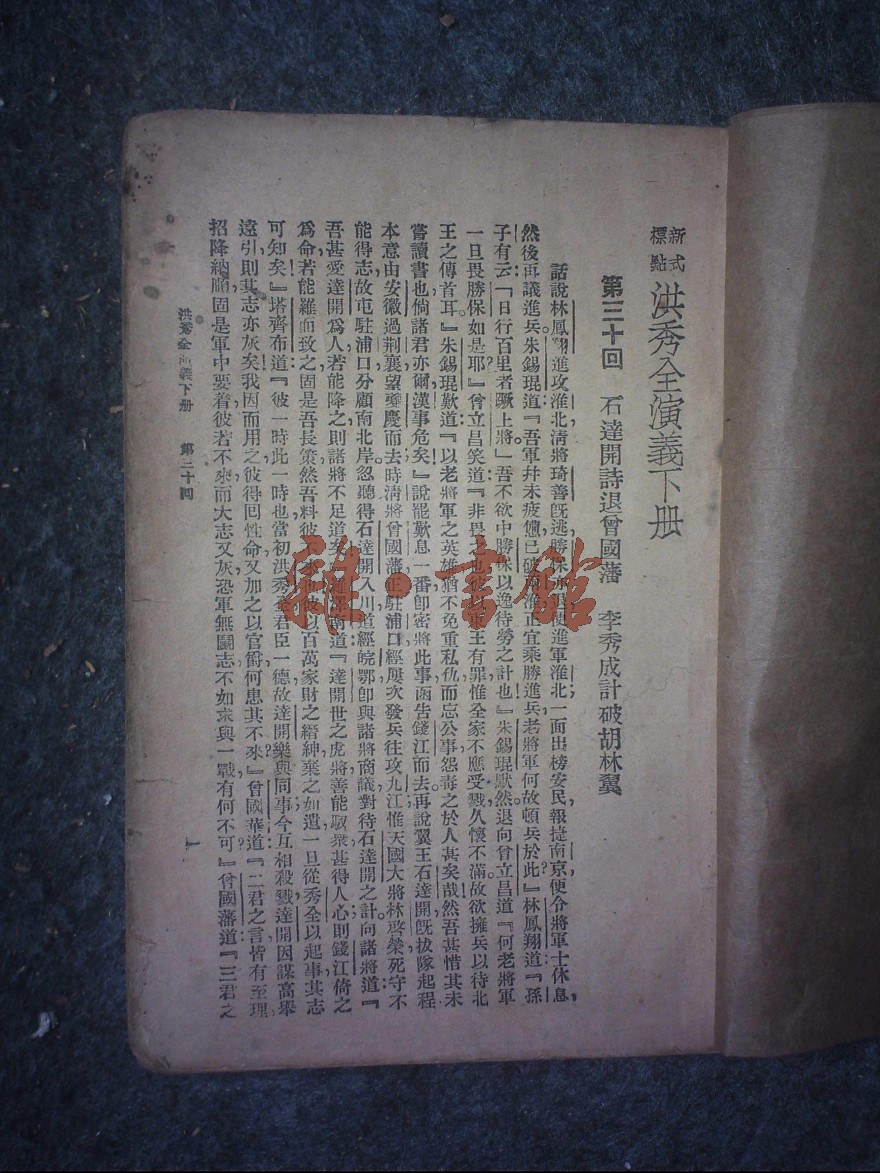 新式標點 洪秀全演義下册
第三十回 石達開詩退曾國藩 李秀成計破胡林翼
話說林鳳翔進攻淮北清將琦善旣逃勝保亦退便進軍淮北一面出榜安民報捷南京便令將軍士休息,
然後再議進兵。朱錫琨道『吾軍幷未疲憊已破兩淮正宜乘勝進兵老將軍何故頓兵於此?』林鳳翔道『孫
子有云「日行百里者蹶上將」吾不欲中勝保以逸待勞之計也』朱錫琨默然。退向曾立昌道『何老將軍
一旦畏勝保如是耶?』曾立昌笑道『非畏之也彼以東王有罪惟全家不應受戮久懷不滿故欲擁兵以待北
王之傳首耳。』朱錫琨歎道『以老將軍之英雄猶不免重私仇而忘公事怨毒之於人甚矣哉然吾甚惜其未
嘗讀書也倘諸君亦爾漢事危矣!』說罷歎息一番卽密將此事函告錢江而去。再說翼王石達開旣拔隊起程
本意由安徽過荆襄望夔慶而去時淸將曾國藩正駐浦口經屢次發兵往攻九江惟天國大將林啓榮死守不
能得志故屯駐浦口分顧南北岸。忽聽得石達開入川道經皖鄂卽與諸將商議對待石達開之計。向諸將道『
吾甚愛達開爲人若能降之則諸將不足道矣』羅澤南道『達開世之虎將善能馭衆甚得人心則錢江倚之
爲命若能羅而致之固是吾長策然吾料彼不來也彼以百萬家財之縉紳棄之如遺一旦從秀全以起事其志
可知矣!』塔齊布道『彼一時此一時也當初洪秀全君臣一德故達開樂與同事今互相殺戮達開因謀高舉
遠引則其志亦灰矣我因而用之彼得回性命又加之以官爵何患其不來?』曾國華道『二君之言皆有至理
招降納順固是軍中要着彼若不來而大志又灰恐軍無鬬志不如求與一戰有何不可?』曾國藩道『三君之
洪秀全演義下册 第三十回 一
雜·書館